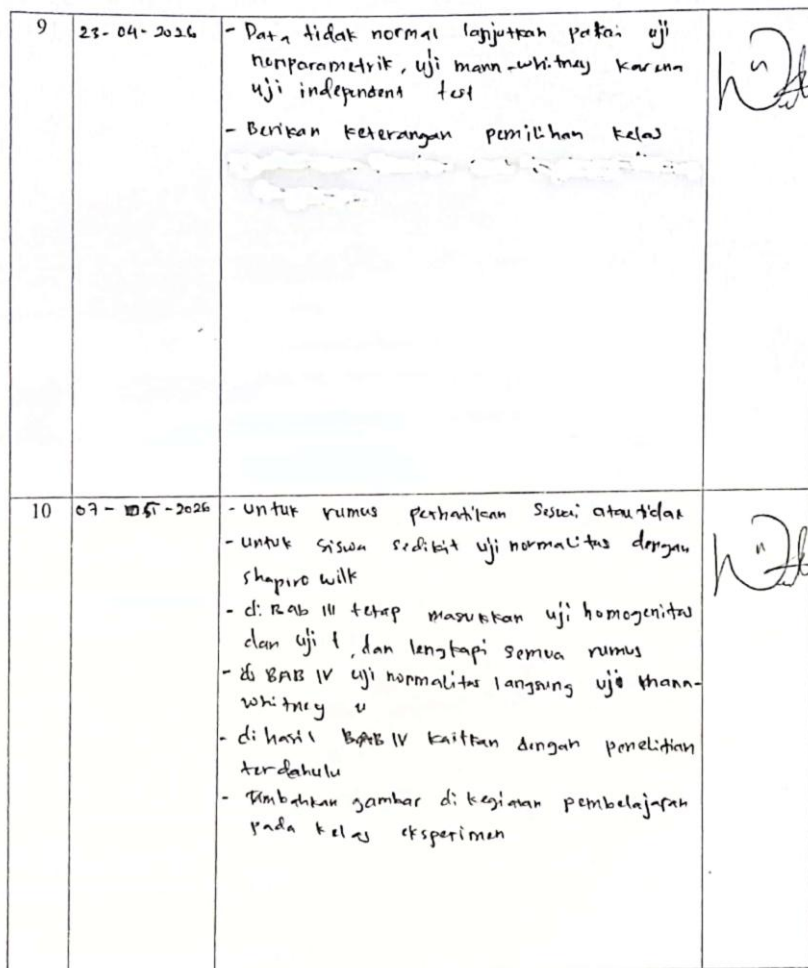 9
23-04-2026
- Data tidak normal lanjutkan pakai uji
nonparametrik, uji mann-whitney karena
uji independent test
- Berikan keterangan pemilihan kelas
10
07- -2026
- untuk rumus perhatikan sesuai atau tidak
- untuk siswa sedikit uji normalitas dengan
shapiro wilk
- di Bab III tetap masukkan uji homogenitas
dan uji t, dan lengkapi semua rumus
- di BAB IV uji normalitas langsung uji mann-
whitney u
- di hasil BAB IV kaitkan dengan penelitian
terdahulu
- Tambahkan gambar di kegiatan pembelajaran
pada kelas eksperimen